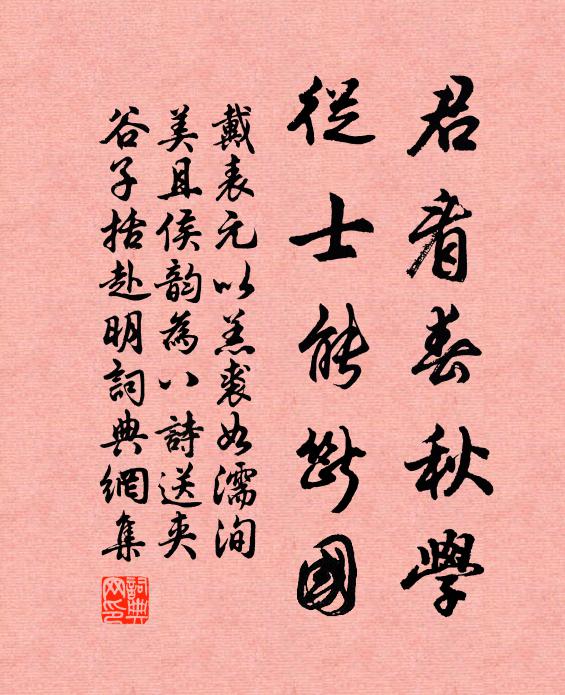 君看春秋學
從士能斷國
戴表元以羔裘如濡洵
美且侯韵為八詩送夾
谷子括赴明詞典網集
詞典
网印